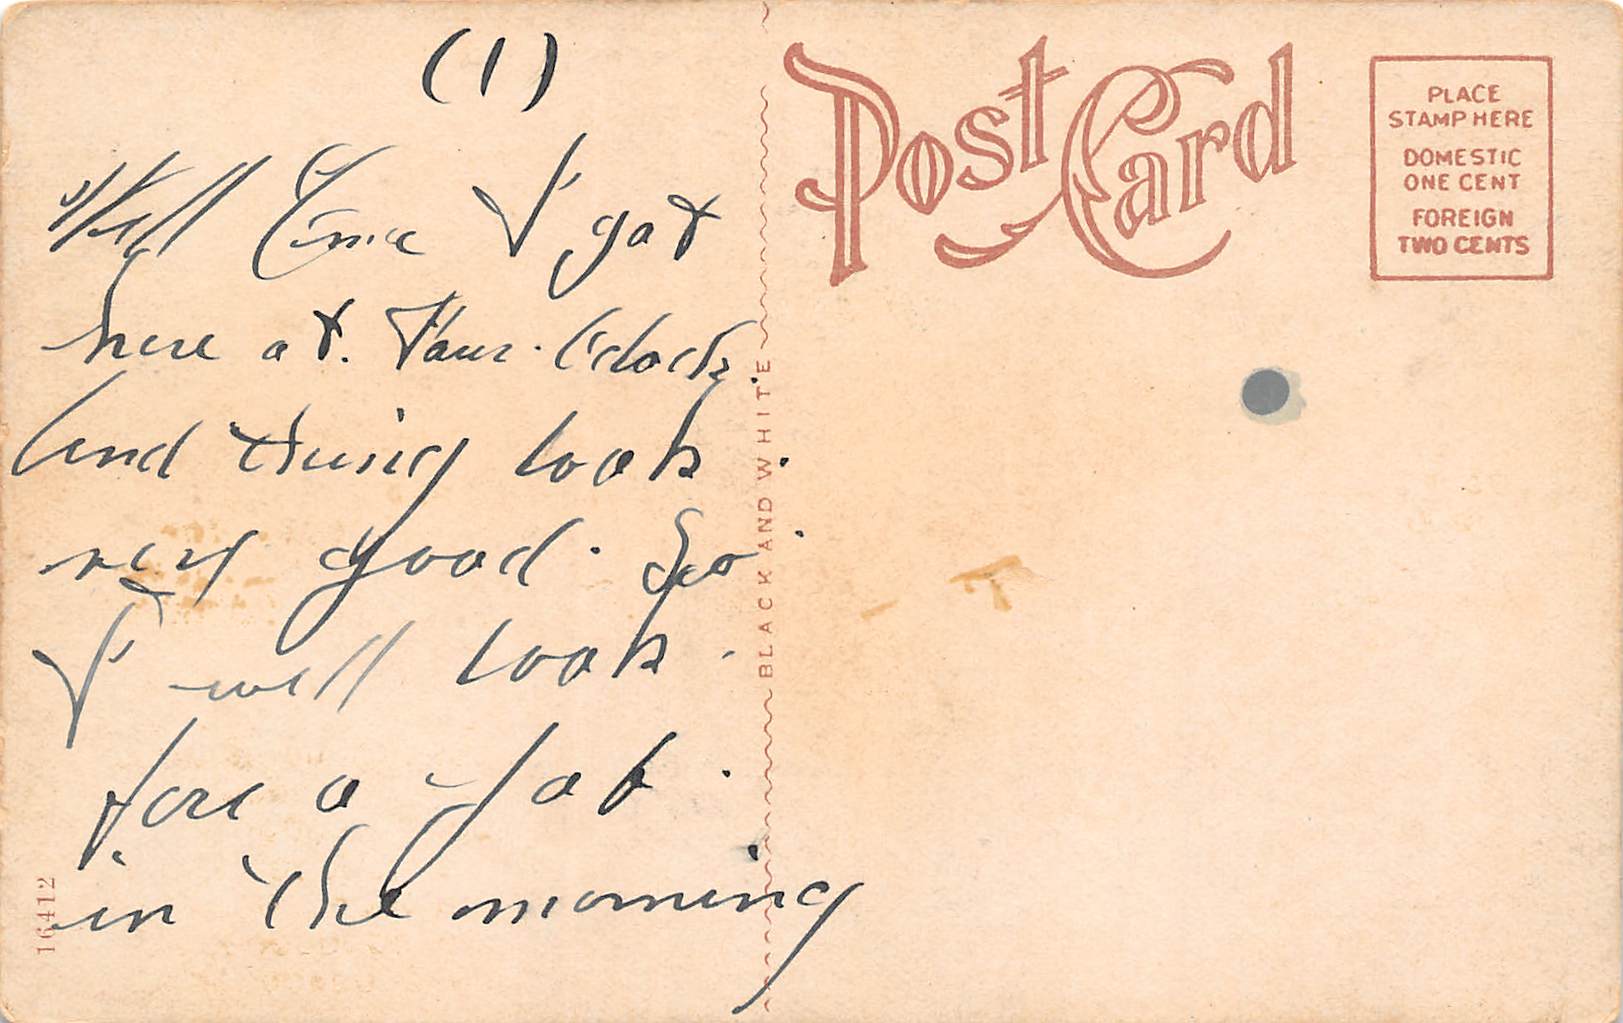 (1)
Well I got
here at. Four. O'clock.
and thing look.
very good. So.
I will look.
fore a Job.
in the morning
16412
BLACK AND WHITE
Post Card
PLACE
STAMP HERE
DOMESTIC
ONE CENT
FOREIGN
TWO CENTS